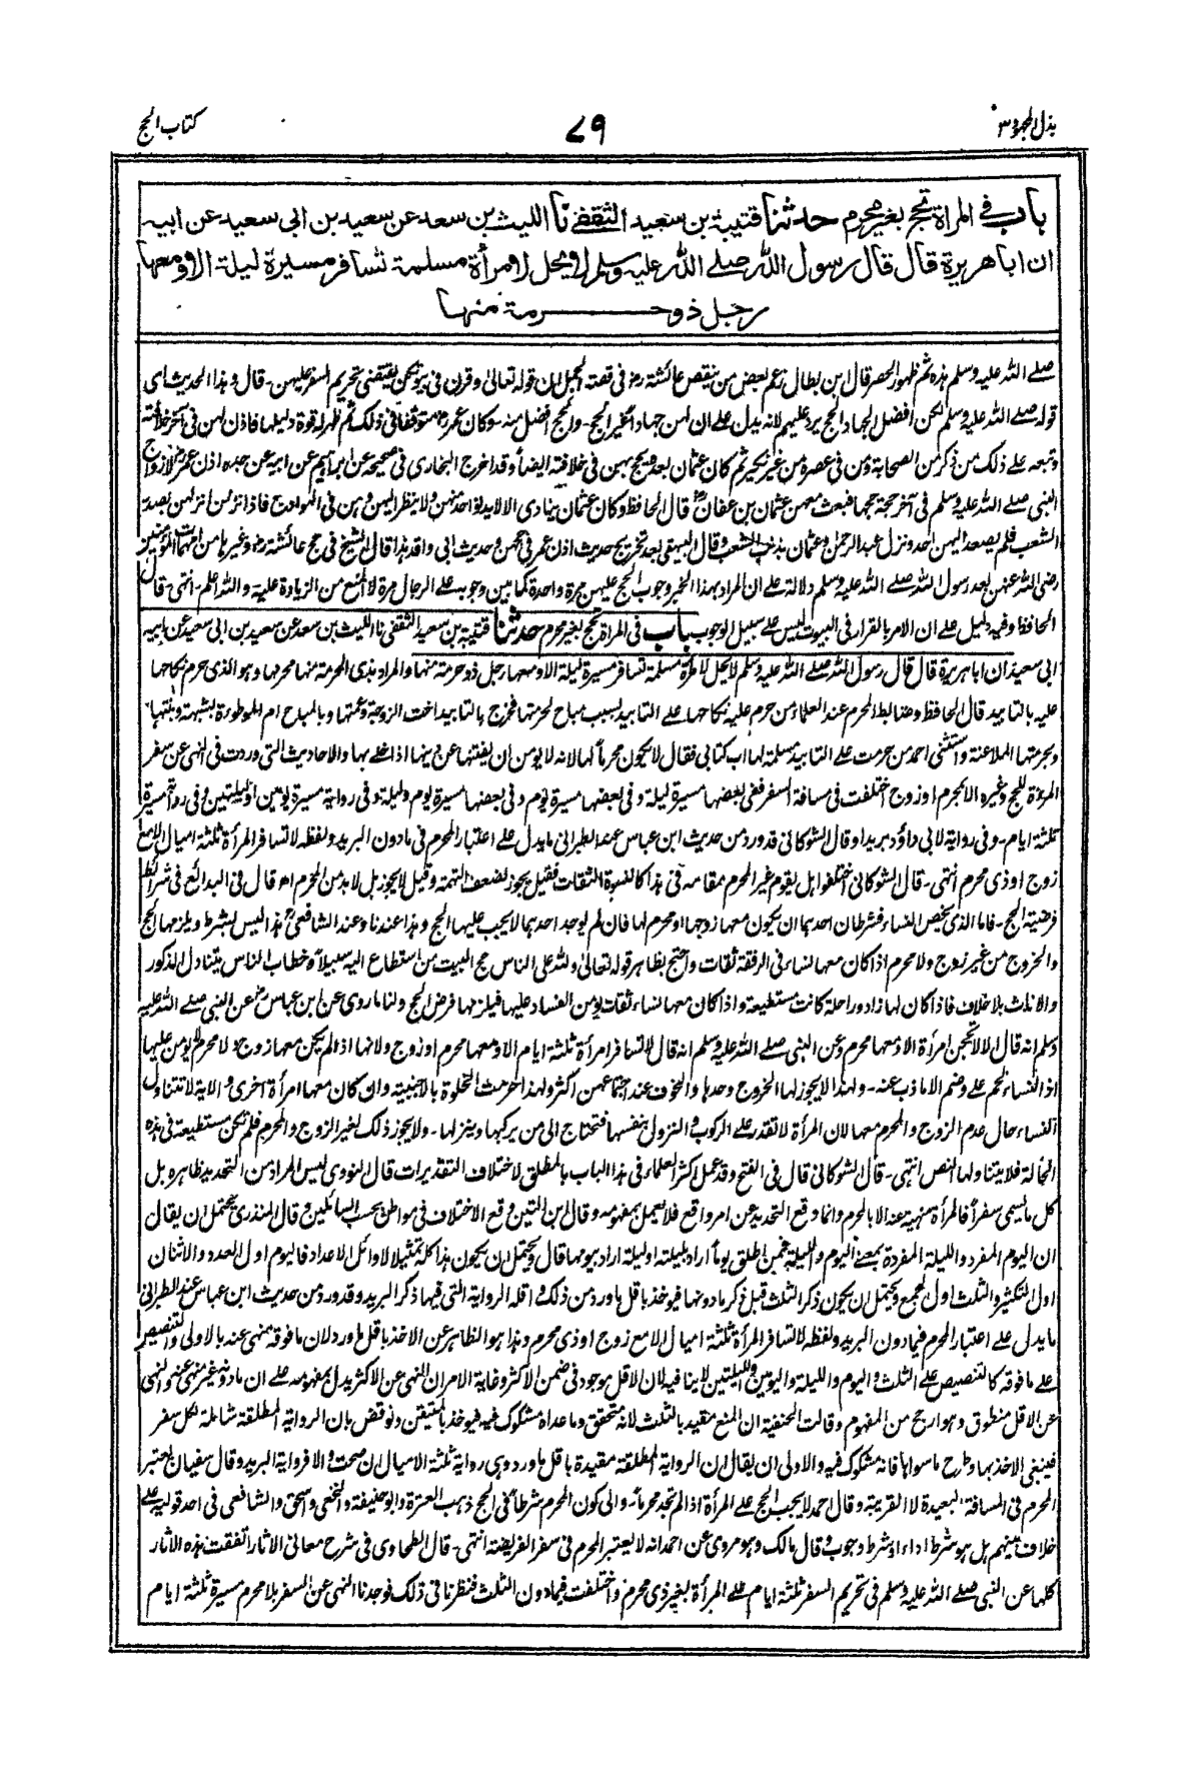 بذل المجهود ٣
٧٩
كتاب الحج
باب في المرأة تحج بغير محرم حدثنا قتيبة بن سعيد الثقفي نا الليث بن سعد عن سعيد بن ابى سعيد عن ابيه
ان ابا هريرة قال قال رسول الله صلى الله عليه وسلم لا يحل لامرأة مسلمة تسافر مسيرة ليلة الا ومعها
رجل ذو حرمة منها
صلى الله عليه وسلم هذه ثم ظهور الحصر قال ابن بطال زعم بعض من ينقص عائشة رض فى قصة الجمل ان قوله تعالى وقرن فى بيوتكن يقتضى تحريم السفر عليهن - قال وهذا الحديث اى
قوله صلى الله عليه وسلم لكن افضل الجهاد الحج يرد عليهم لانه يدل على ان لهن جهادا غير الحج - والحج افضل منه - وكان عمر رض متوقفا فى ذلك ثم ظهر له قوة دليلها فاذن لهن فى آخر خلافته
وتبعه على ذلك من ذكر من الصحابة ومن فى عصره من غير نكير ثم كان عثمان بعده يحج بهن فى خلافته ايضا وقد اخرج البخارى فى صحيحه عن ابراهيم عن ابيه عن جده اذن عمر رض لازواج
النبى صلى الله عليه وسلم فى آخر حجة حجها فبعث معهن عثمان بن عفان قال الحافظ وكان عثمان ينادى الا لا يدنو احد منهن ولا ينظر اليهن وهن فى الهوادج فاذا نزلن انزلهن بصدر
الشعب فلم يصعد اليهن احد ونزل عبد الرحمن وعثمان بذنب الشعب وقال البيهقى بعد تخريج حديث اذن عمر فى حجهن وحديث ابى واقد هذا قال الشيخ فى حج عائشة رض وغيرها من امهات المؤمنين
رضى الله عنهن بعد رسول الله صلى الله عليه وسلم دلالة على ان المراد بهذا الخبر وجوب الحج عليهن مرة واحدة كما بين وجوبه على الرجال مرة لا المنع من الزيادة عليه والله اعلم - انتهى - قال
الحافظ وفيه دليل على ان الامر بالقرار فى البيوت ليس على سبيل الوجوب باب فى المرأة تحج بغير محرم حدثنا قتيبة بن سعيد الثقفى نا الليث بن سعد عن سعيد بن ابى سعيد عن ابيه
ابى سعيد ان ابا هريرة قال قال رسول الله صلى الله عليه وسلم لا يحل لامرأة مسلمة تسافر مسيرة ليلة الا ومعها رجل ذو حرمة منها والمراد بذى الحرمة منها محرمها وهو الذى حرم نكاحها
عليه بالتابيد قال الحافظ وضابط المحرم عند العلماء من حرم عليه نكاحها على التابيد بسبب مباح لحرمتها فخرج بالتابيد اخت الزوجة وعمتها وبالمباح ام الموطوءة بشبهة وبنتها
وبحرمتها الملاعنة واستثنى احمد من حرمت على التابيد مسلمة لها اب كتابى فقال لا يكون محرما لها لانه لا يومن ان يفتنها عن دينها اذا خلى بها والاحاديث التى وردت فى النهى عن سفر
المرأة للحج وغيره الا بمحرم او زوج اختلفت فى مسافة السفر ففى بعضها مسيرة ليلة وفى بعضها مسيرة يوم وفى بعضها مسيرة يوم وليلة وفى رواية مسيرة يومين او ليلتين وفى رواية مسيرة
ثلثة ايام - وفى رواية لابى داؤد بريدا وقال الشوكانى قد ورد من حديث ابن عباس عند الطبرانى ما يدل على اعتبار المحرم فى ما دون البريد ولفظه لا تسافر المرأة ثلثة اميال الا مع
زوج او ذى محرم انتهى - قال الشوكانى اختلفوا هل يقوم غير المحرم مقامه فى هذا كالنسوة الثقات فقيل يجوز لضعف التهمة وقيل لا يجوز بل لا بد من المحرم اه قال فى البدائع فى شرائط
فرضية الحج - فاما الذى يخص النساء فشرطان احدهما ان يكون معها زوجها او محرم لها فان لم يوجد احدهما لا يجب عليها الحج وهذا عندنا وعند الشافعى هذا ليس بشرط ويلزمها الحج
والخروج من غير زوج ولا محرم اذا كان معها نساء فى الرفقة ثقات واحتج بظاهر قوله تعالى ولله على الناس حج البيت من استطاع اليه سبيلا وخطاب الناس يتناول الذكور
والاناث بلا خلاف فاذا كان لها زاد وراحلة كانت مستطيعة واذا كان معها نساء ثقات يؤمن الفساد عليها فيلزمها فرض الحج ولنا ما روى عن ابن عباس رض عن النبى صلى الله عليه
وسلم انه قال الا لا تحجن امرأة الا ومعها محرم وعن النبى صلى الله عليه وسلم انه قال لا تسافر امرأة ثلثة ايام الا ومعها محرم او زوج ولانها اذا لم يكن معها زوج ولا محرم لا يؤمن عليها
اذ النساء لحم على وضم الا ما ذب عنه - ولهذا لا يجوز لها الخروج وحدها والخوف عند اجتماعهن اكثر ولهذا حرمت الخلوة بالاجنبية وان كان معها امرأة اخرى والآية لا تتناول
النساء حال عدم الزوج والمحرم معها لان المرأة لا تقدر على الركوب والنزول بنفسها فتحتاج الى من يركبها وينزلها - ولا يجوز ذلك لغير الزوج والمحرم فلم تكن مستطيعة فى هذه
الحالة فلا يتناولها النص انتهى - قال الشوكانى قال فى الفتح وقد عمل اكثر العلماء فى هذا الباب بالمطلق لاختلاف التقديرات قال النووى ليس المراد من التحديد ظاهره بل
كل ما يسمى سفرا فالمرأة منهية عنه الا بالمحرم وانما وقع التحديد عن امر واقع فلا يعمل بمفهومه وقال ابن التين وقع الاختلاف فى مواطن بحسب السائلين وقال المنذرى يحتمل ان يقال
ان اليوم المفرد والليلة المفردة بمعنى اليوم والليلة فمن اطلق يوما اراد بليلته او ليلة اراد بيومها قال ويحتمل ان يكون هذا كله تمثيلا لاوائل الاعداد فاليوم اول العدد والاثنان
اول التكثير والثلث اول الجمع ويحتمل ان يكون ذكر الثلث قبل ذكر ما دونها فيؤخذ باقل ما ورد من ذلك واقله الرواية التى فيها ذكر البريد وقد ورد من حديث ابن عباس عند الطبرانى
ما يدل على اعتبار المحرم فيما دون البريد ولفظه لا تسافر المرأة ثلثة اميال الا مع زوج او ذى محرم وهذا هو الظاهر عن الاخذ باقل ما ورد لان ما فوقه منهى عنه بالاولى والتنصيص
على ما فوقه كالتنصيص على الثلث واليوم والليلة واليومين والليلتين لا ينافيه لان الاقل موجود فى ضمن الاكثر وغاية الامر ان النهى عن الاكثر يدل بمفهومه على ان ما دونه غير منهى عنه والنهى
عن الاقل منطوق وهو ارجح من المفهوم وقالت الحنفية ان المنع مقيد بالثلث لانه متحقق وما عداه مشكوك فيه فيؤخذ بالمتيقن ونوقض بان الرواية المطلقة شاملة لكل سفر
فينبغى الاخذ بها وطرح ما سواها فانه مشكوك فيه والاولى ان يقال ان الرواية المطلقة مقيدة باقل ما ورد وهى رواية ثلثة الاميال ان صحت والا فرواية البريد وقال سفيان يعتبر
المحرم فى المسافة البعيدة لا القريبة وقال احمد لا يجب الحج على المرأة اذا لم تجد محرما - والى كون المحرم شرطا فى الحج ذهب العترة وابو حنيفة والنخعى واسحق والشافعى فى احد قوليه على
خلاف بينهم هل هو شرط اداء او شرط وجوب وقال مالك وهو مروى عن احمد انه لا يعتبر المحرم فى سفر الفريضة انتهى - قال الطحاوى فى شرح معانى الآثار اتفقت هذه الآثار
كلها عن النبى صلى الله عليه وسلم فى تحريم السفر ثلثة ايام على المرأة بغير ذى محرم واختلفت فيما دون الثلث فنظرنا فى ذلك فوجدنا النهى عن السفر بلا محرم مسيرة ثلثة ايام